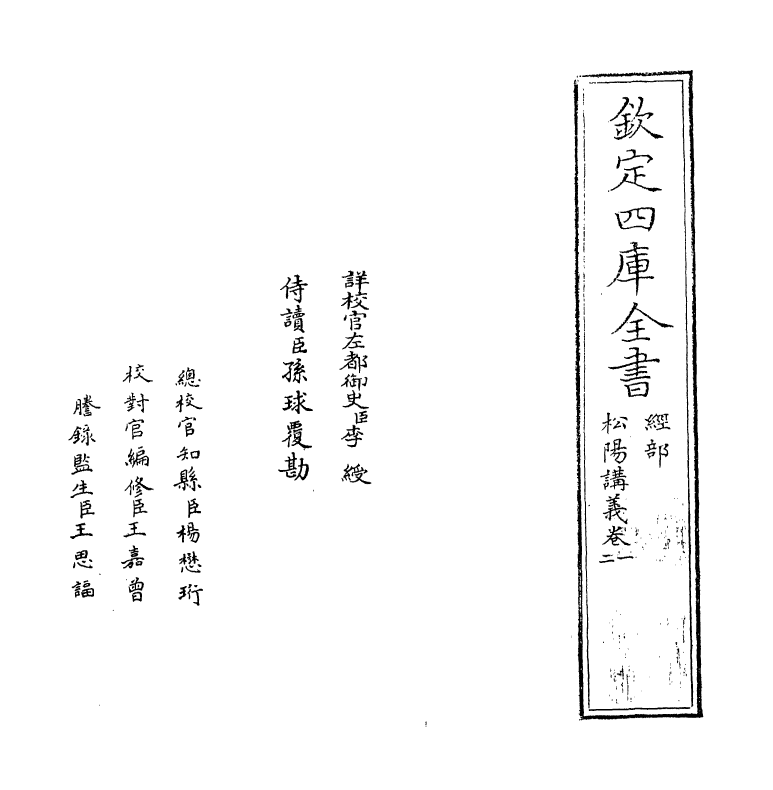 欽定四庫全書
經部
松陽講義卷一二
詳校官左都御史臣李綬
侍讀臣孫球覆勘
總校官知縣臣楊懋珩
校對官編修臣王嘉曾
謄錄監生臣王思諨